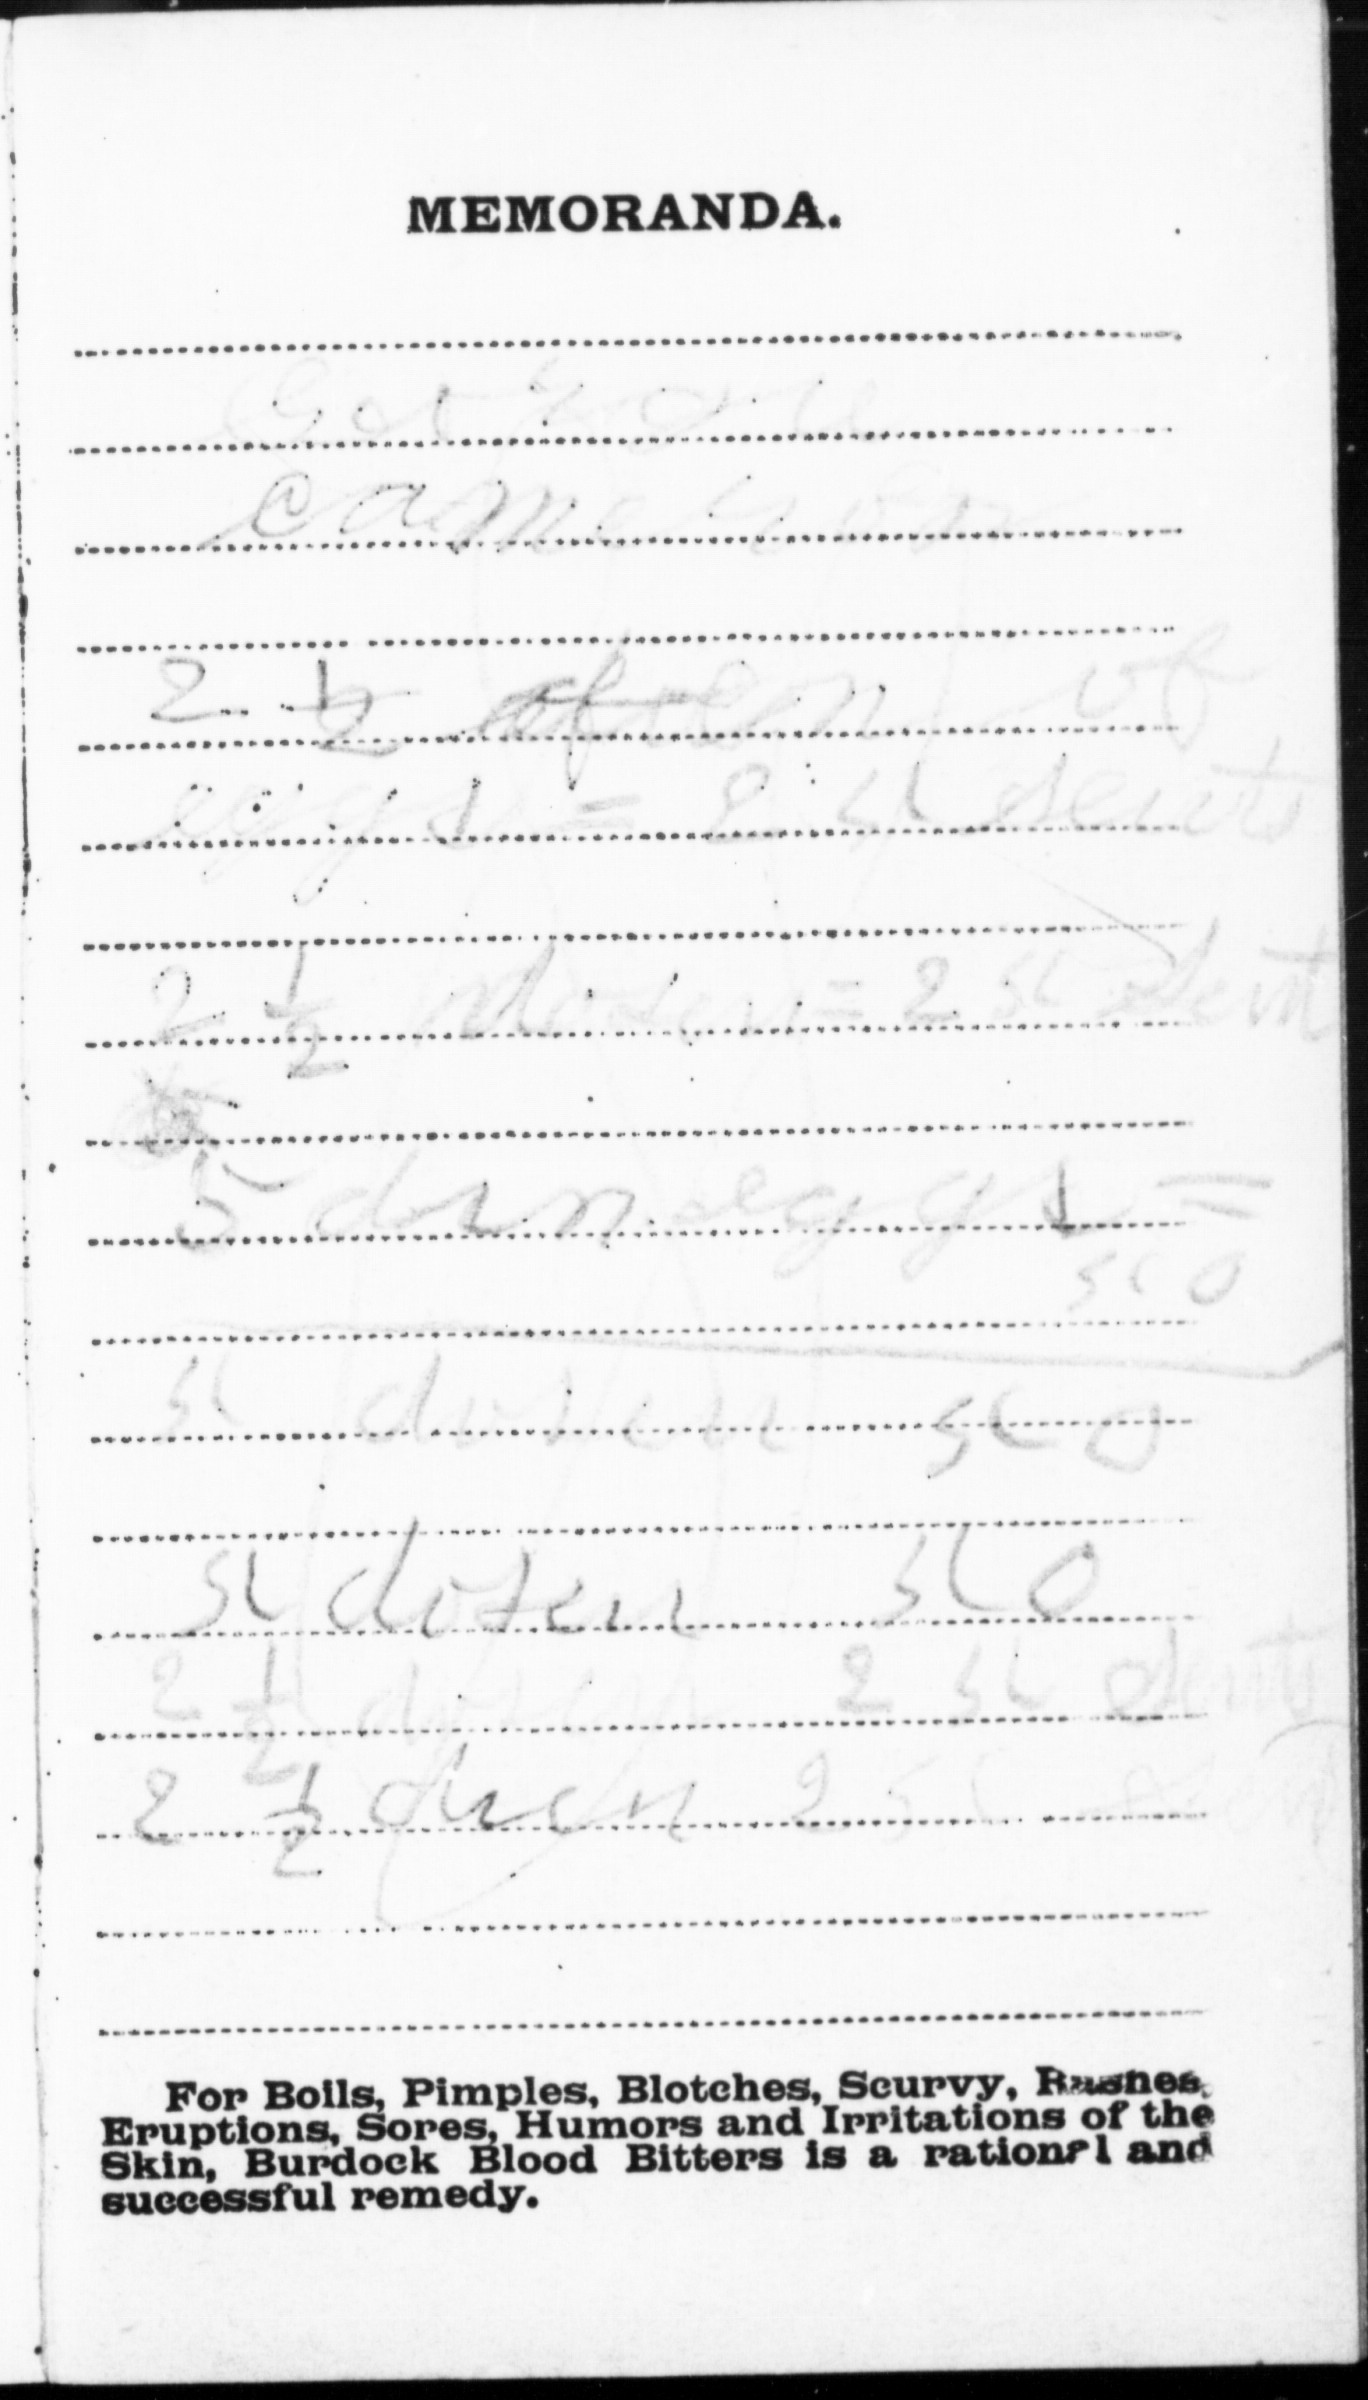 MEMORANDA.
came
2 1/2 of
eggs = 2 5 cents
2 1/2 dozen = 2 5 cent
5 dozn eggs =
50
5 dozen 50
5 dozen 50
2 1/2 dozen 2 5 cents
2 1/2 dozen 2 5
For Boils, Pimples, Blotches, Scurvy, Rashes,
Eruptions, Sores, Humors and Irritations of the
Skin, Burdock Blood Bitters is a rational and
successful remedy.